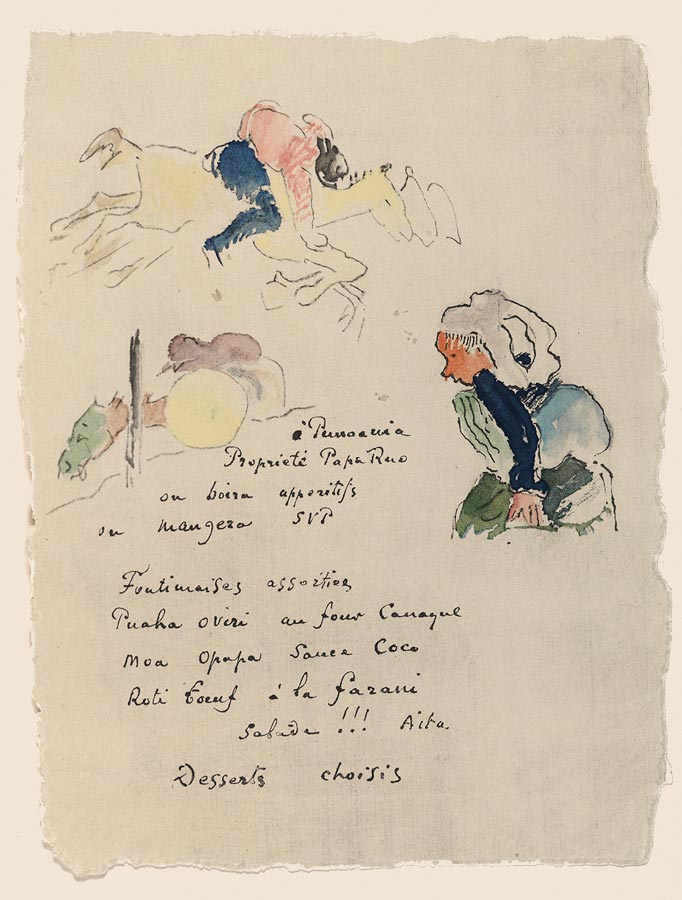 à Punoauia
Proprieté Papa Ruo
on boira apperitifs
on mangera SVP
Foutimaises assorties
Puaha oviri au four Canaque
Moa Opapa Sauce Coco
Roti bœuf à la farani
Salade !!! Aita.
Desserts choisis